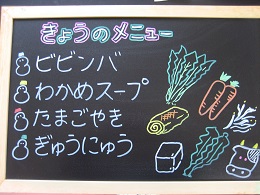 きょうのメニュー
ビビンバ
わかめスープ
たまごやき
ぎゅうにゅう